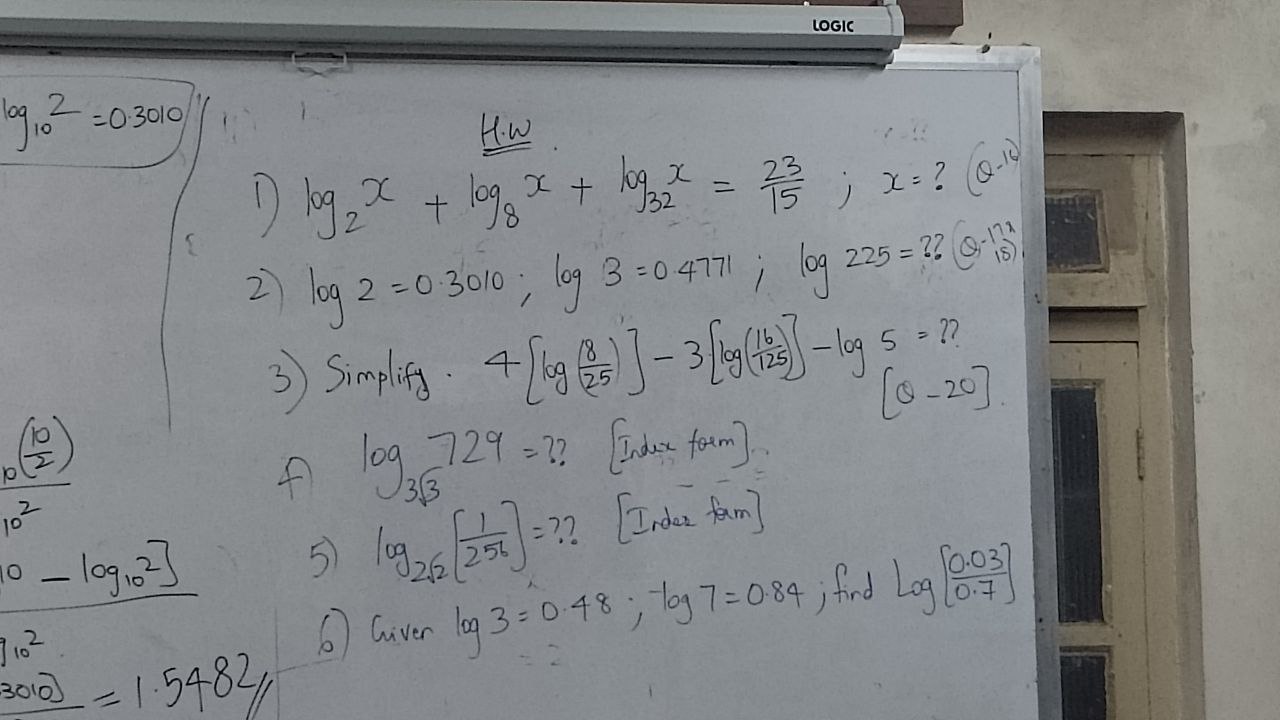 LOGIC
log₁₀2 = 0.3010
H.W
1) log₂x + log₈x + log₃₂x = 23/15 ; x = ?
2) log 2 = 0.3010 ; log 3 = 0.4771 ; log 225 = ??
3) Simplify. 4[log(8/25)] - 3[log(16/125)] - log 5 = ??
[Q - 20].
4) log_3√3 729 = ?? [Index form].
5) log_2√2 [1/256] = ?? [Index form]
6) Given log 3 = 0.48 ; log 7 = 0.84 ; find Log[0.03/0.7]
10(10/2)
10²
10 - log₁₀2]
10²
3010] = 1.5482//